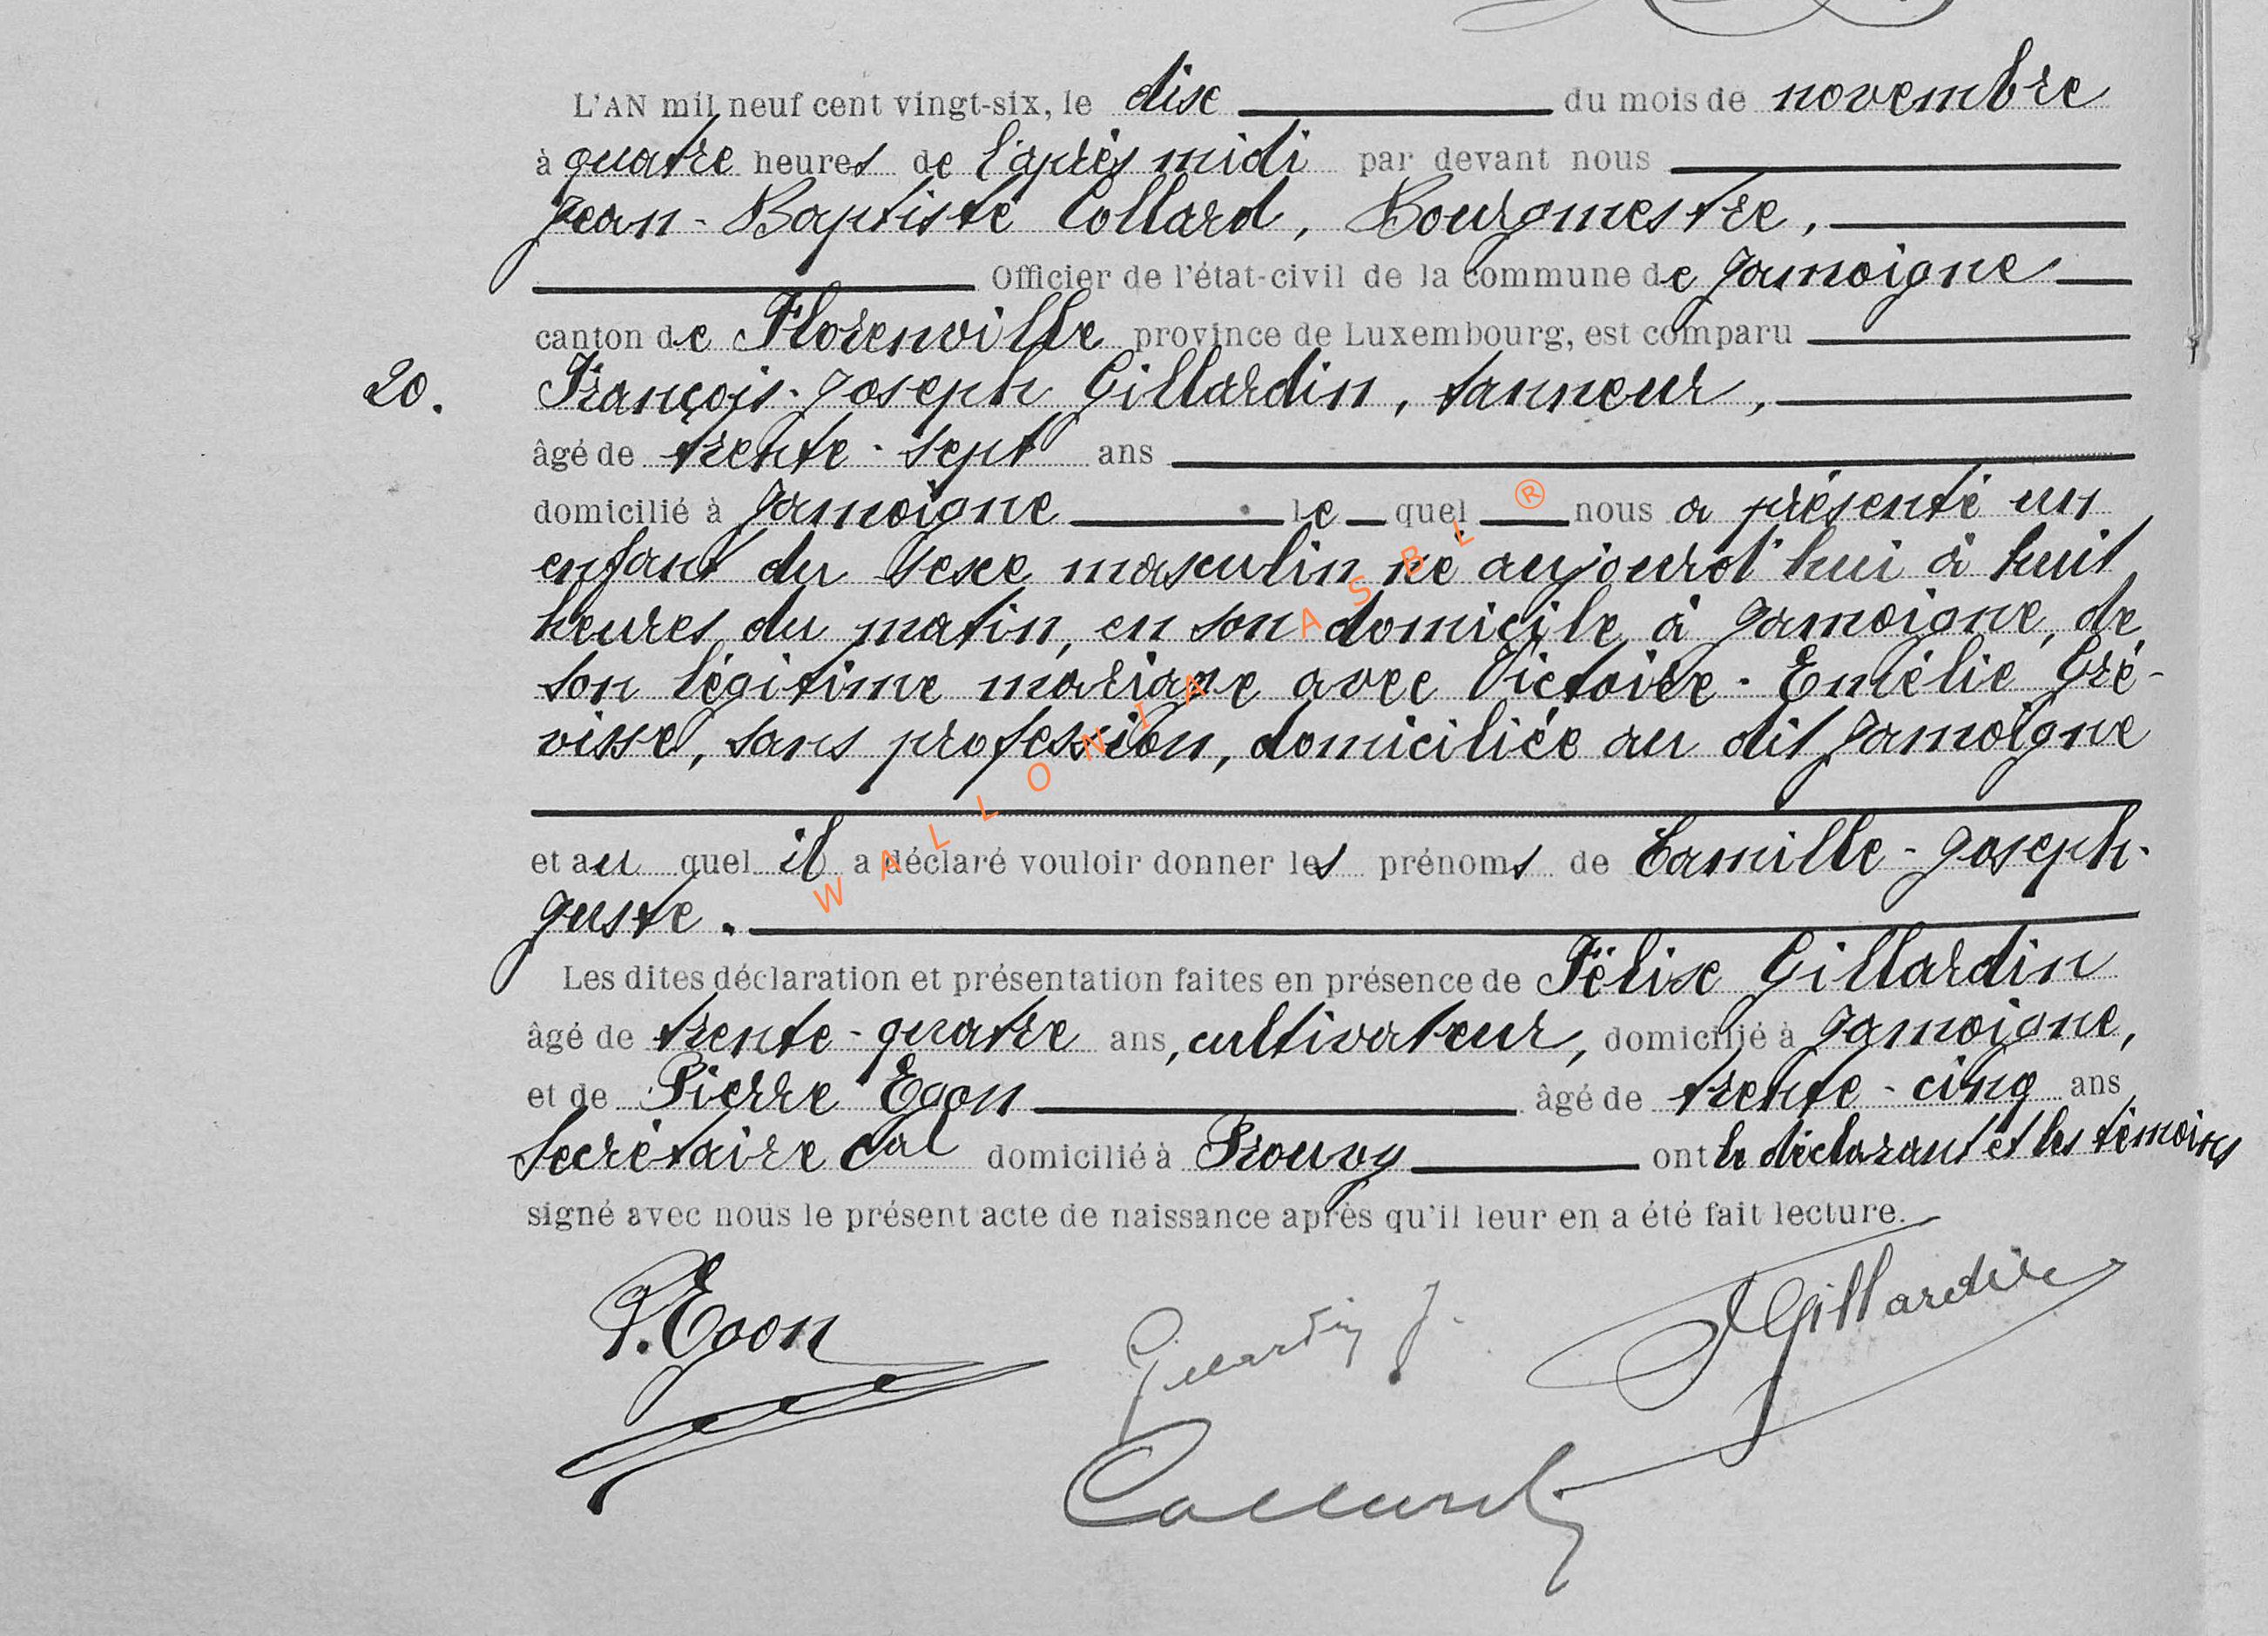 L'AN mil neuf cent vingt-six, le dix du mois de novembre
à quatre heures de l'après midi par devant nous
Jean-Baptiste Collard, Bourgmestre,
Officier de l'état-civil de la commune de Jamoigne
canton de Florenville province de Luxembourg, est comparu
20. François-Joseph Gillardin, tanneur,
âgé de trente-sept ans
domicilié à Jamoigne lequel nous a présenté un
enfant du sexe masculin né aujourd'hui à huit
heures du matin, en son domicile à Jamoigne, de
son légitime mariage avec Victoire-Emélie Gré-
visse, sans profession, domiciliée au dit Jamoigne
et auquel il a déclaré vouloir donner les prénoms de Camille-Joseph-
Juste.
Les dites déclaration et présentation faites en présence de Félix Gillardin
âgé de trente-quatre ans, cultivateur, domicilié à Jamoigne,
et de Pierre Egon âgé de trente-cinq ans
Secrétaire cal domicilié à Prouvy ont le déclarant et les témoins
signé avec nous le présent acte de naissance après qu'il leur en a été fait lecture.
P. Egon Gillardin J. F Gillardin
Collard
WALLONIA ASBL ®